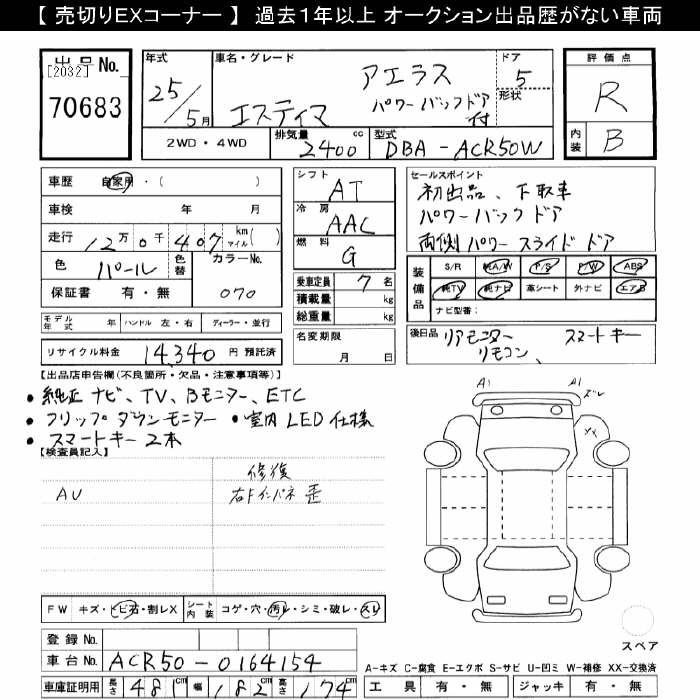 【 売切りEXコーナー 】 過去１年以上 オークション出品歴がない車両
出品 No.
[2032]
70683
年式
25/5月
車名・グレード
エスティマ
アエラス
パワーバックドア付
ドア
5
形状
評価点
R
内装
B
2WD・4WD
排気量 2400 cc
型式 DBA-ACR50W
車歴 自家用・( )
車検 年 月
走行 12万0千407 km マイル( )
色 パール 色替 カラーNo. 070
保証書 有・無
モデル年式 年 ハンドル 左・右 ディーラー・並行
リサイクル料金 14,340 円 預託済
シフト AT
冷房 AAC
燃料 G
乗車定員 7 名
積載量 kg
総重量 kg
名変期限 月 日
セールスポイント
初出品、下取車
パワーバックドア
両側パワースライドドア
装備品
S/R 純A/W P/S P/W ABS
純TV 純ナビ 革シート 外ナビ エアB
ナビ型番:
後日品 リアモニター スマートキー
リモコン、
【出品店申告欄(不良箇所・欠品・注意事項等)】
• 純正ナビ、TV、Bモニター、ETC
• フリップダウンモニター • 室内LED仕様
• スマートキー2本
【検査員記入】
AU
修復
右Fインパネ歪
A1 A1
ズレ
XX
FW キズ・ヒビ石・割レX シート内装 コゲ・穴・汚レ・シミ・破レ・スレ
登録 No.
車台 No. ACR50-0164154
車庫証明用 長さ 481 cm 幅 182 cm 高さ 174 cm
スペア
A-キズ C-腐食 E-エクボ S-サビ U-凹ミ W-補修 XX-交換済
工具 有・無 ジャッキ 有・無